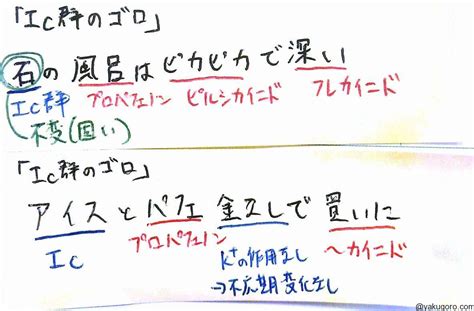 「Ic群のゴロ」
石の風呂はピカピカで深い
Ic群 プロパフェノン ピルシカイニド フレカイニド
不変(固い)
「Ic群のゴロ」
アイスとパフェ金なしで買いに
Ic プロパフェノン K⁺の作用なし ~カイニド
→不応期変化なし
@yakugoro.com